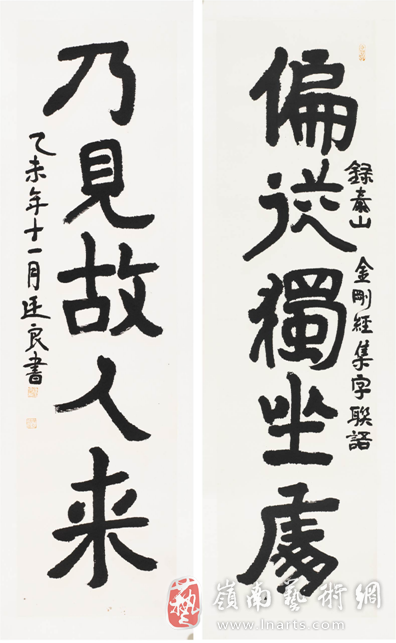 偏從獨坐處
錄泰山金剛經集字聯語
乃見故人来
乙未年十一月廷良書
藝
嶺南藝術網
www.lnarts.com